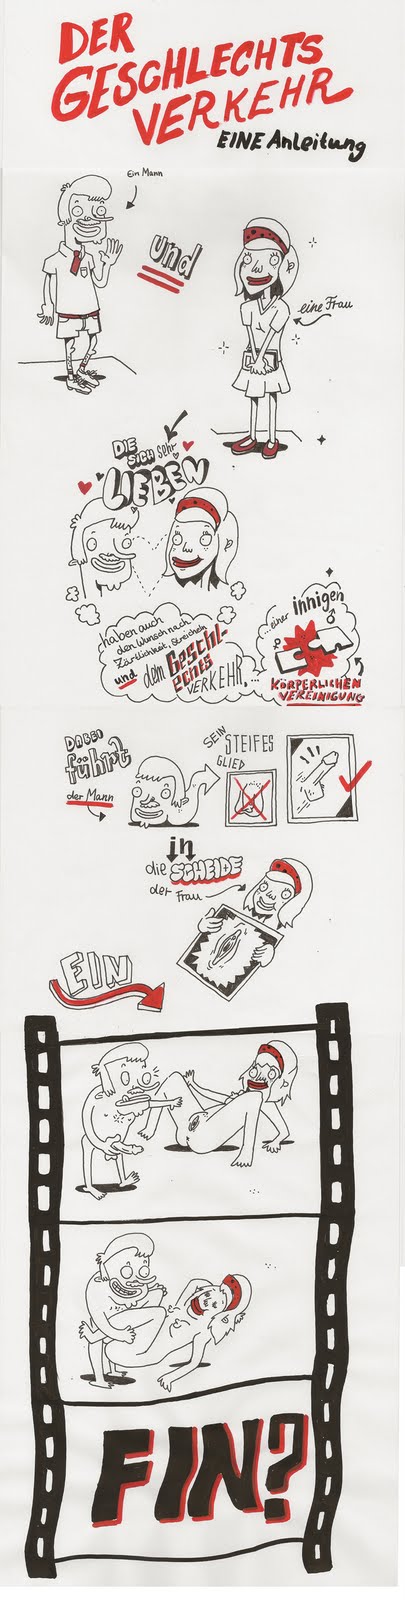 DER
GESCHLECHTS
VERKEHR
EINE Anleitung
Ein Mann
und
eine Frau
DIE
SICH sehr
LIEBEN
haben auch
den Wunsch nach
Zärtlichkeit, Streicheln
und dem Geschl-
echts
VERKEHR...
...einer innigen
KÖRPERLICHEN
VEREINIGUNG
DABEI
führt
der Mann
SEIN
STEIFES
GLIED
in
die SCHEIDE
der Frau
EIN
FIN?